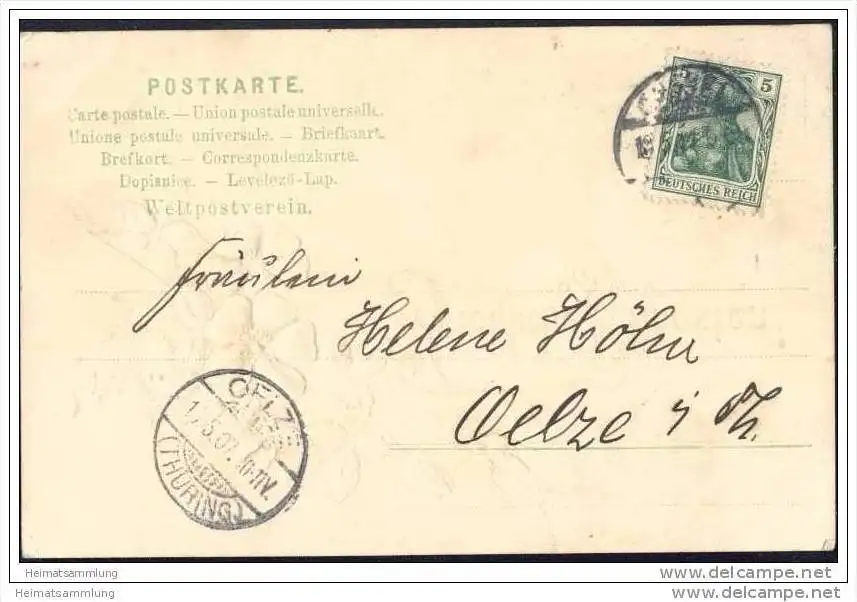 POSTKARTE.
Carte postale. — Union postale universelle.
Unione postale universale. — Briefkaart.
Brefkort. — Correspondenzkarte.
Dopisnice. — Levelező-Lap.
Weltpostverein.
5
DEUTSCHES REICH
Fräulein
Helene Höhn
Oelze i Th.
OELZE
(THÜRING.)
Heimatsammlung
Heimatsammlung
www.delcampe.net
www.delcampe.net